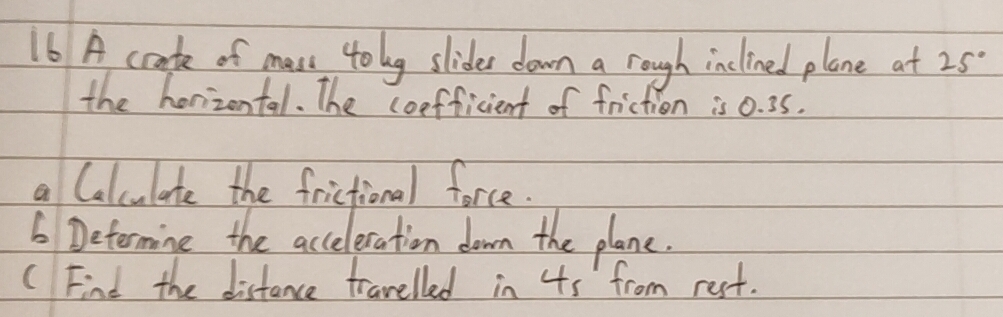 16 A crate of mass 40kg slides down a rough inclined plane at 25°
the horizontal. The coefficient of friction is 0.35.
a Calculate the frictional force.
b Determine the acceleration down the plane.
c Find the distance travelled in 4s from rest.